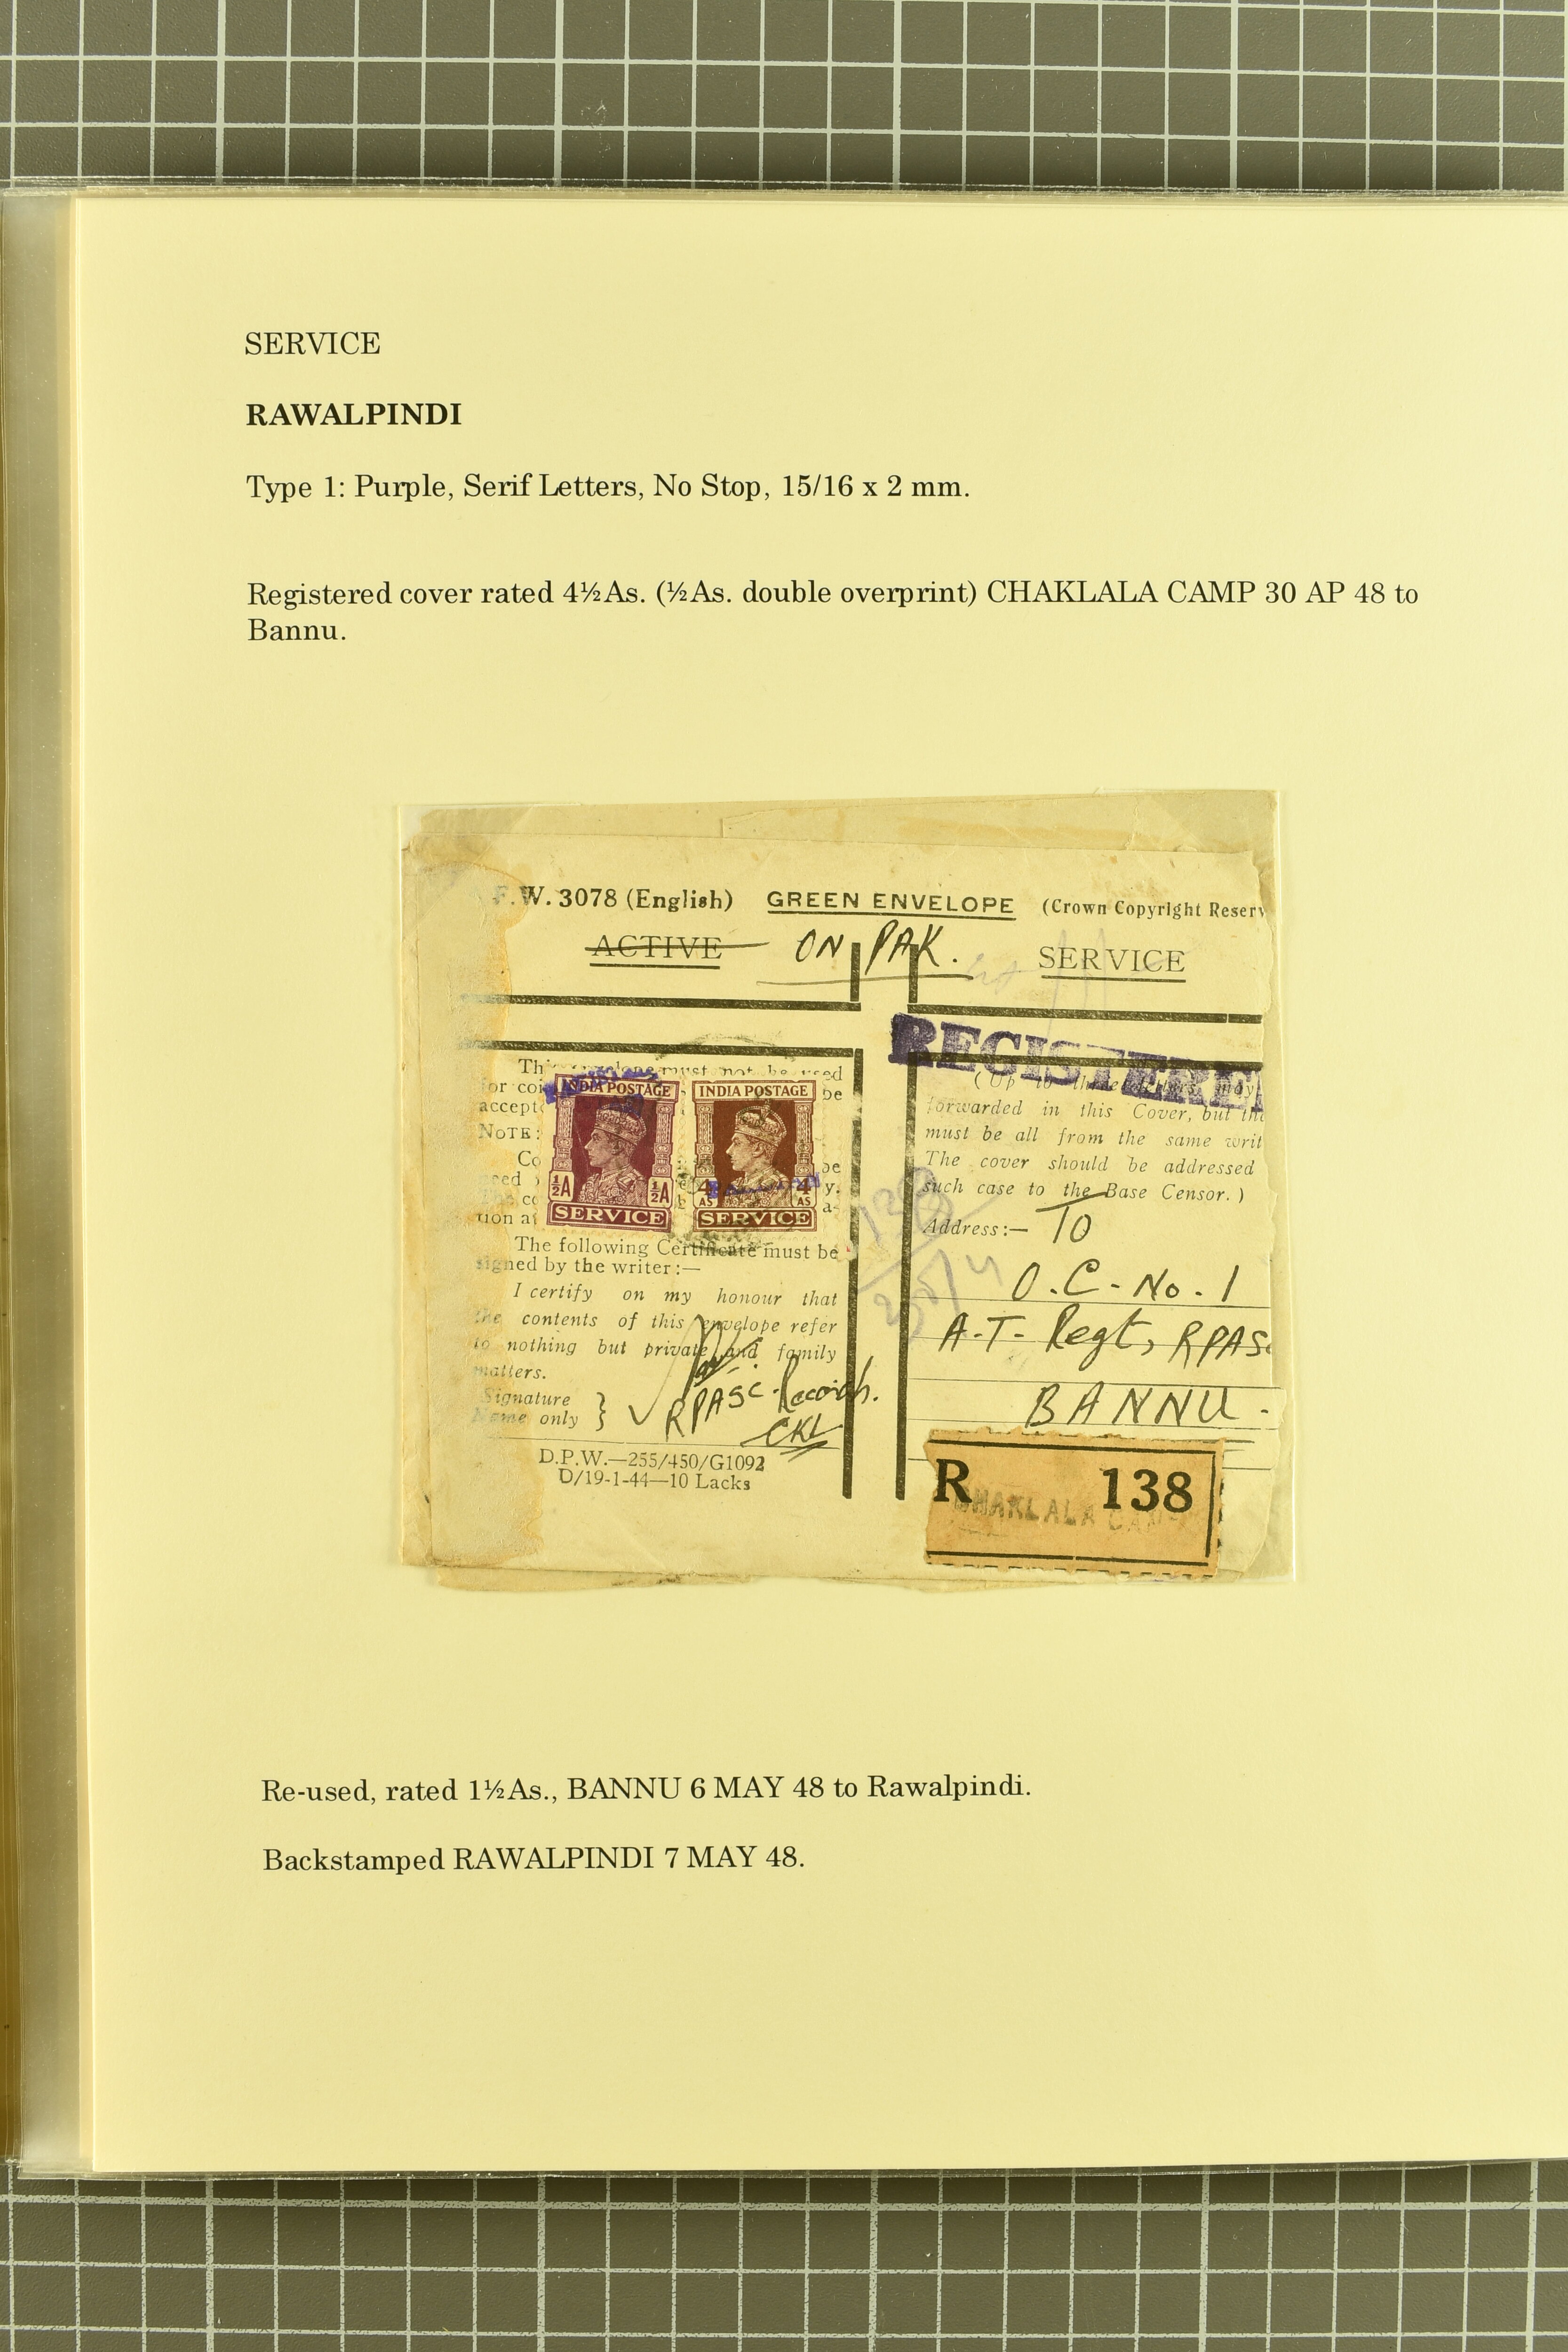 SERVICE
RAWALPINDI
Type 1: Purple, Serif Letters, No Stop, 15/16 x 2 mm.
Registered cover rated 4½As. (½As. double overprint) CHAKLALA CAMP 30 AP 48 to
Bannu.
F.W. 3078 (English) GREEN ENVELOPE (Crown Copyright Reserv
ACTIVE ON PAK. SERVICE
REGISTERE
This must not be used
for be
accept
NOTE:
Co be
y.
tion a
INDIA POSTAGE
½A ½A
SERVICE
INDIA POSTAGE
4 AS 4 AS
SERVICE
The following Certificate must be
signed by the writer:—
I certify on my honour that
the contents of this envelope refer
to nothing but private and family
matters.
Signature
Name only } RPASC Records.
CKL
D.P.W.—255/450/G1092
D/19-1-44—10 Lacks
(Up to three letters may
forwarded in this Cover, but the
must be all from the same writ
The cover should be addressed
such case to the Base Censor.)
Address:— To
O.C-No.1
A-T-Regt, RPASC
BANNU-
138
30/4
R 138
CHAKLALA CAMP
Re-used, rated 1½As., BANNU 6 MAY 48 to Rawalpindi.
Backstamped RAWALPINDI 7 MAY 48.